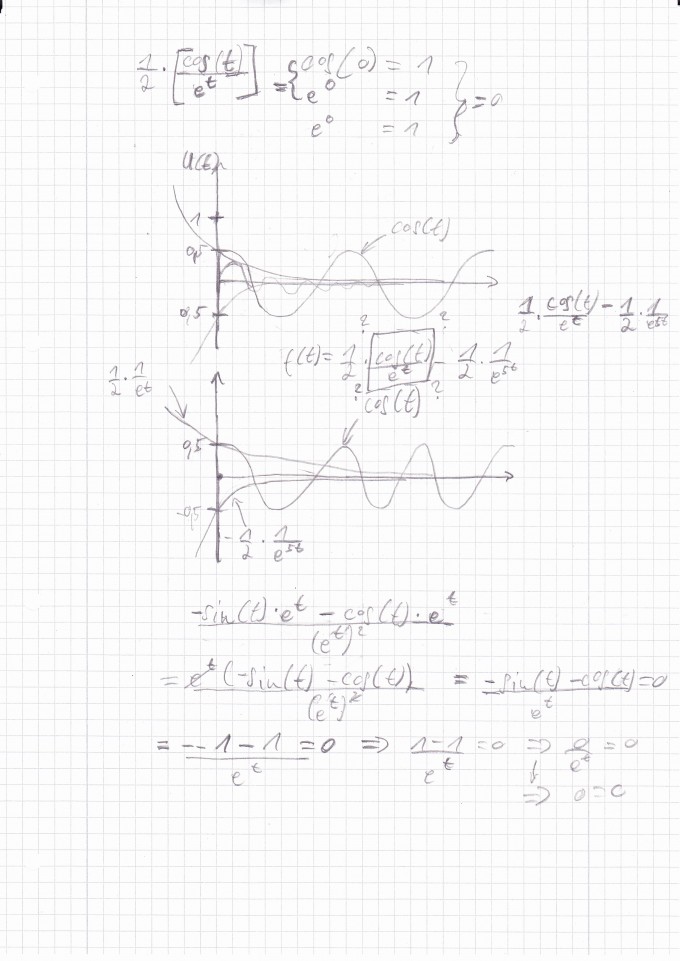 1/2 · [cos(t)/e^t] = { cos(0) = 1
e^0 = 1
e^0 = 1 } = 0
U(t)
1
0,5
cos(t)
0,5
1/2 · cos(t)/e^t - 1/2 · 1/e^5t
? ?
f(t) = 1/2 · cos(t)/e^t - 1/2 · 1/e^5t
? ?
1/2 · 1/e^t
cos(t)
0,5
-0,5
- 1/2 · 1/e^5t
-sin(t) · e^t - cos(t) · e^t / (e^t)^2
= e^t (-sin(t) - cos(t)) / (e^t)^2 = -sin(t) - cos(t) / e^t = 0
= --1-1 / e^t = 0 ⇒ 1-1 / e^t = 0 ⇒ 0/e^t = 0
↓
⇒ 0 = 0